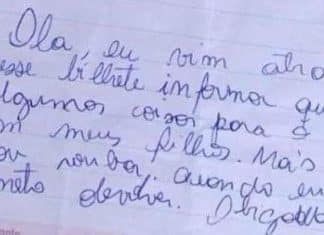 Ola, eu vim atra
esse bilhete informar que
algumas coisas para o
m meus filhos. Mais
ou roubar, quando eu
meto devolver. Obrigado